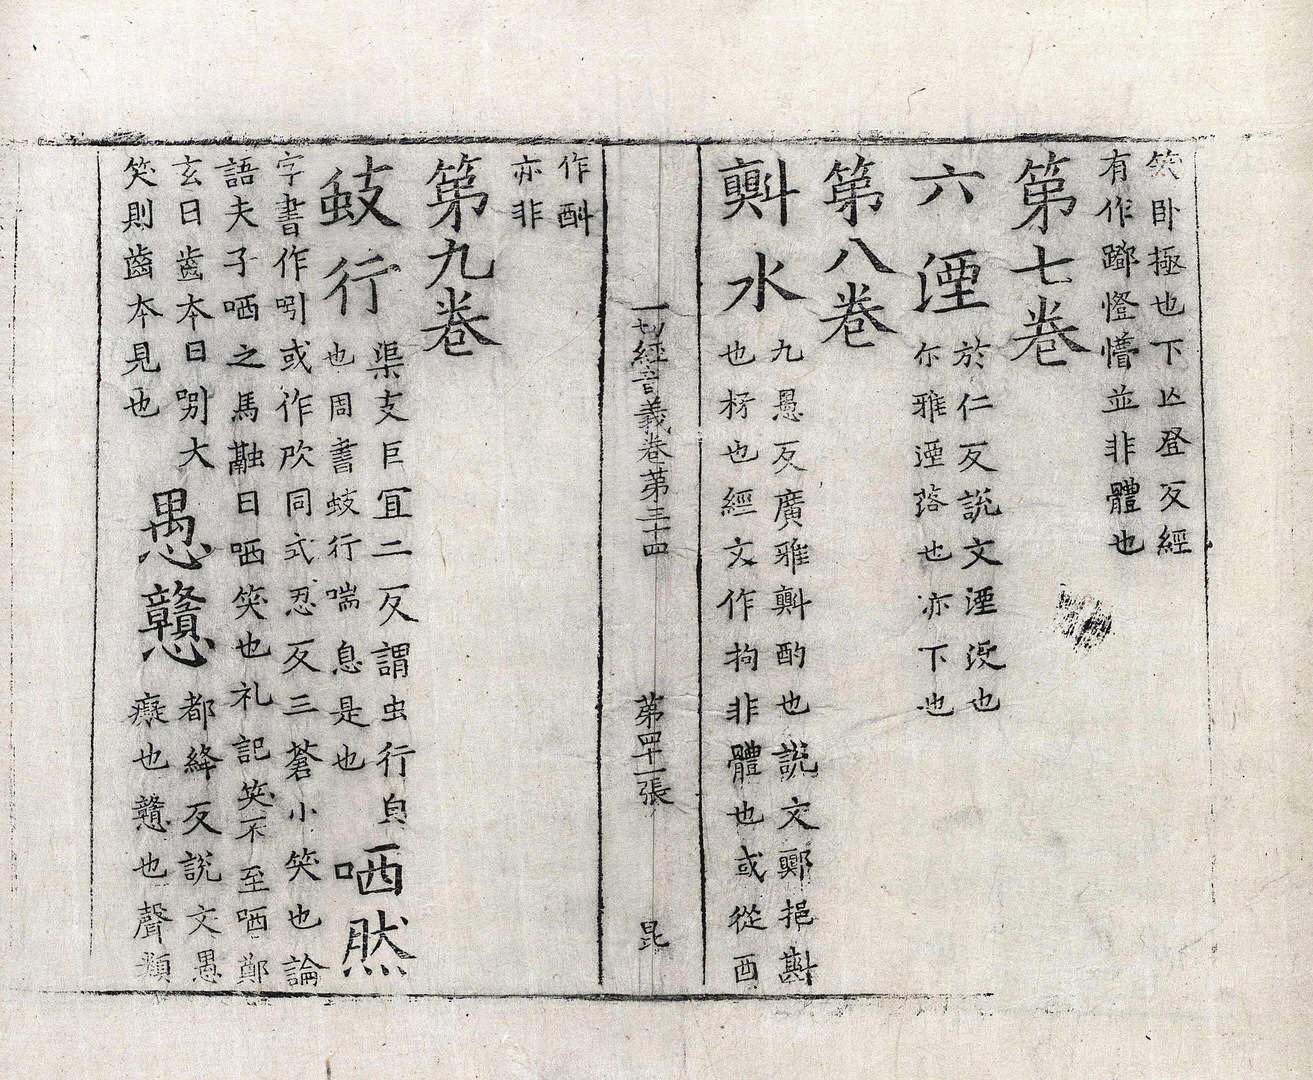 笑卧極也下丘登反經
有作䠬憕懵並非體也
第七卷
六湮於仁反説文湮没也
尒雅湮落也亦下也
第八卷
㪺水九愚反廣雅㪺酌也説文㪺挹斟
也杼也經文作拘非體也或從酉
一切經音義卷苐三十四 苐四十一張 昆
作酙
亦非
第九卷
蚑行渠支巨冝二反謂虫行皃
也周書蚑行喘息是也
哂然
字書作吲或作㰞同式忍反三蒼小笑也論
語夫子哂之馬融曰哂笑也礼記笑不至哂鄭
玄曰齒本曰哂大
笑則齒本見也
愚戇都絳反説文愚
癡也戇也聲類